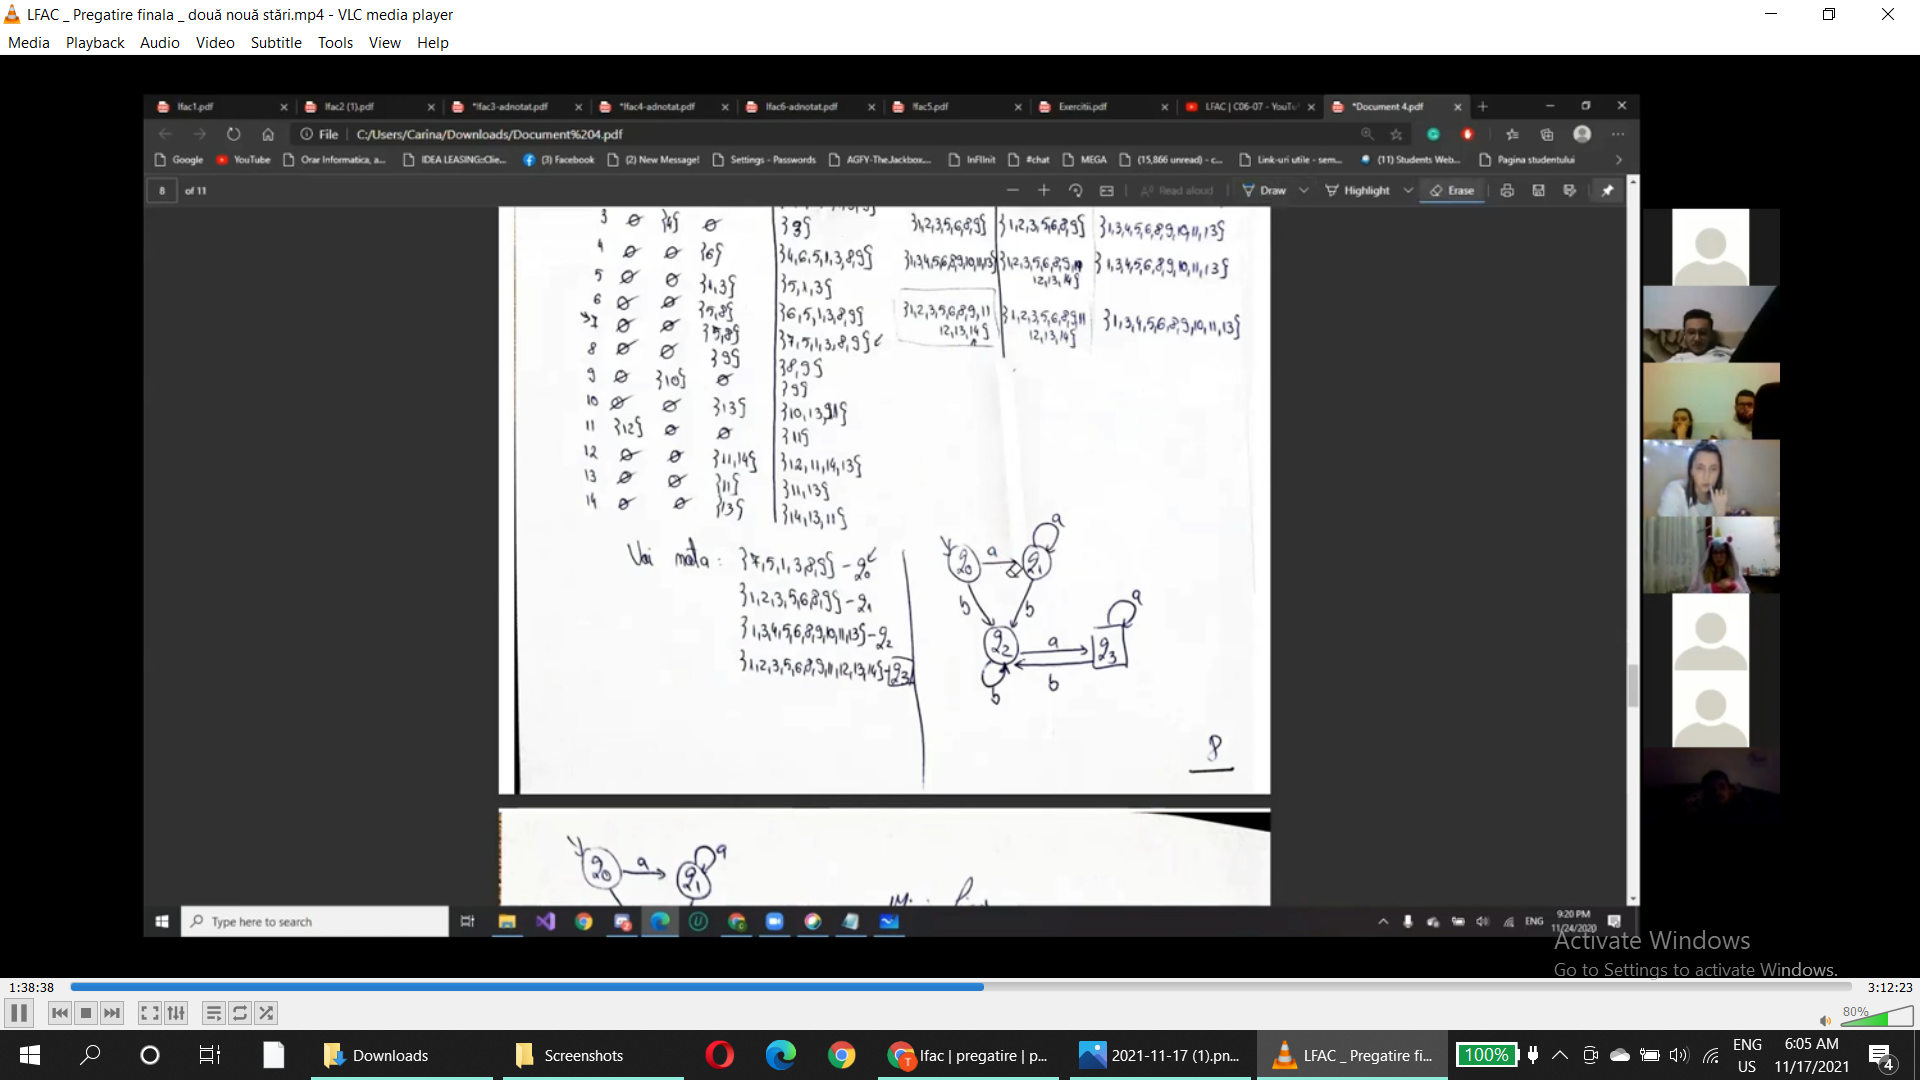 LFAC _ Pregatire finala _ două nouă stări.mp4 - VLC media player
Media Playback Audio Video Subtitle Tools View Help
lfac1.pdf lfac2 (1).pdf *lfac3-adnotat.pdf *lfac4-adnotat.pdf lfac6-adnotat.pdf lfac5.pdf Exercitii.pdf LFAC | C06-07 - YouTu *Document 4.pdf
File C:/Users/Carina/Downloads/Document%204.pdf
Google YouTube Orar Informatica, a... IDEA LEASING::Clie... (3) Facebook (2) New Message! Settings - Passwords AGFY-TheJackbox... InFIInit #chat MEGA (15,866 unread) - c... Link-uri utile - sem... (11) Students Web... Pagina studentului
8 of 11 Read aloud Draw Highlight Erase
3 ∅ {4} ∅ {3} {1,2,3,5,6,8,9} {1,2,3,5,6,8,9} {1,3,4,5,6,8,9,10,11,13}
4 ∅ ∅ {6} {4,6,5,1,3,8,9} {1,3,4,5,6,8,9,10,11,13} {1,2,3,5,6,8,9,11 {1,3,4,5,6,8,9,10,11,13}
12,13,14}
5 ∅ ∅ {1,3} {5,1,3}
6 ∅ ∅ {5,8} {6,5,1,3,8,9} {1,2,3,5,6,8,9,11 {1,2,3,5,6,8,9,11 {1,3,4,5,6,8,9,10,11,13}
12,13,14} 12,13,14}
7 ∅ ∅ {5,8} {7,5,1,3,8,9}
8 ∅ ∅ {9} {8,9}
9 ∅ {10} ∅ {9}
10 ∅ ∅ {13} {10,13,11}
11 {12} ∅ ∅ {11}
12 ∅ ∅ {11,14} {12,11,14,13}
13 ∅ ∅ {11} {11,13}
14 ∅ ∅ {13} {14,13,11}
{7,5,1,3,8,9} - q0
{1,2,3,5,6,8,9} - q1
{1,3,4,5,6,8,9,10,11,13} - q2
{1,2,3,5,6,8,9,11,12,13,14} - q3
a
q0 a q1
b b
a
q2 a q3
b b
8
a
q0 a q1
Type here to search
ENG 9:20 PM
11/24/2020
Activate Windows
Go to Settings to activate Windows.
1:38:38 3:12:23
80%
Downloads Screenshots lfac | pregatire | p... 2021-11-17 (1).pn... LFAC _ Pregatire fi... 100% ENG US 6:05 AM 11/17/2021 4